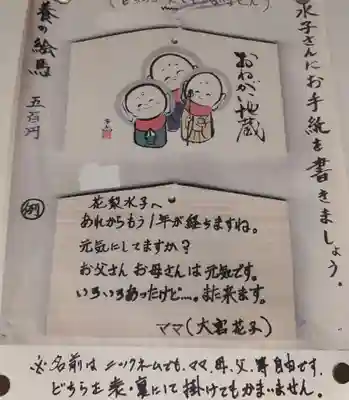 水子さんにお手紙を書きましょう。
養の絵馬 五百円
おねがい地蔵
例
花梨水子へ
あれからもう1年が経ちますね。
元気にしてますか?
お父さん お母さんは元気です。
いろいろあったけど…。また来ます。
ママ(大宮花子)
※名前はニックネームでも、ママ、母、父、等自由です。
どちらを表・裏にして掛けてもかまいません。